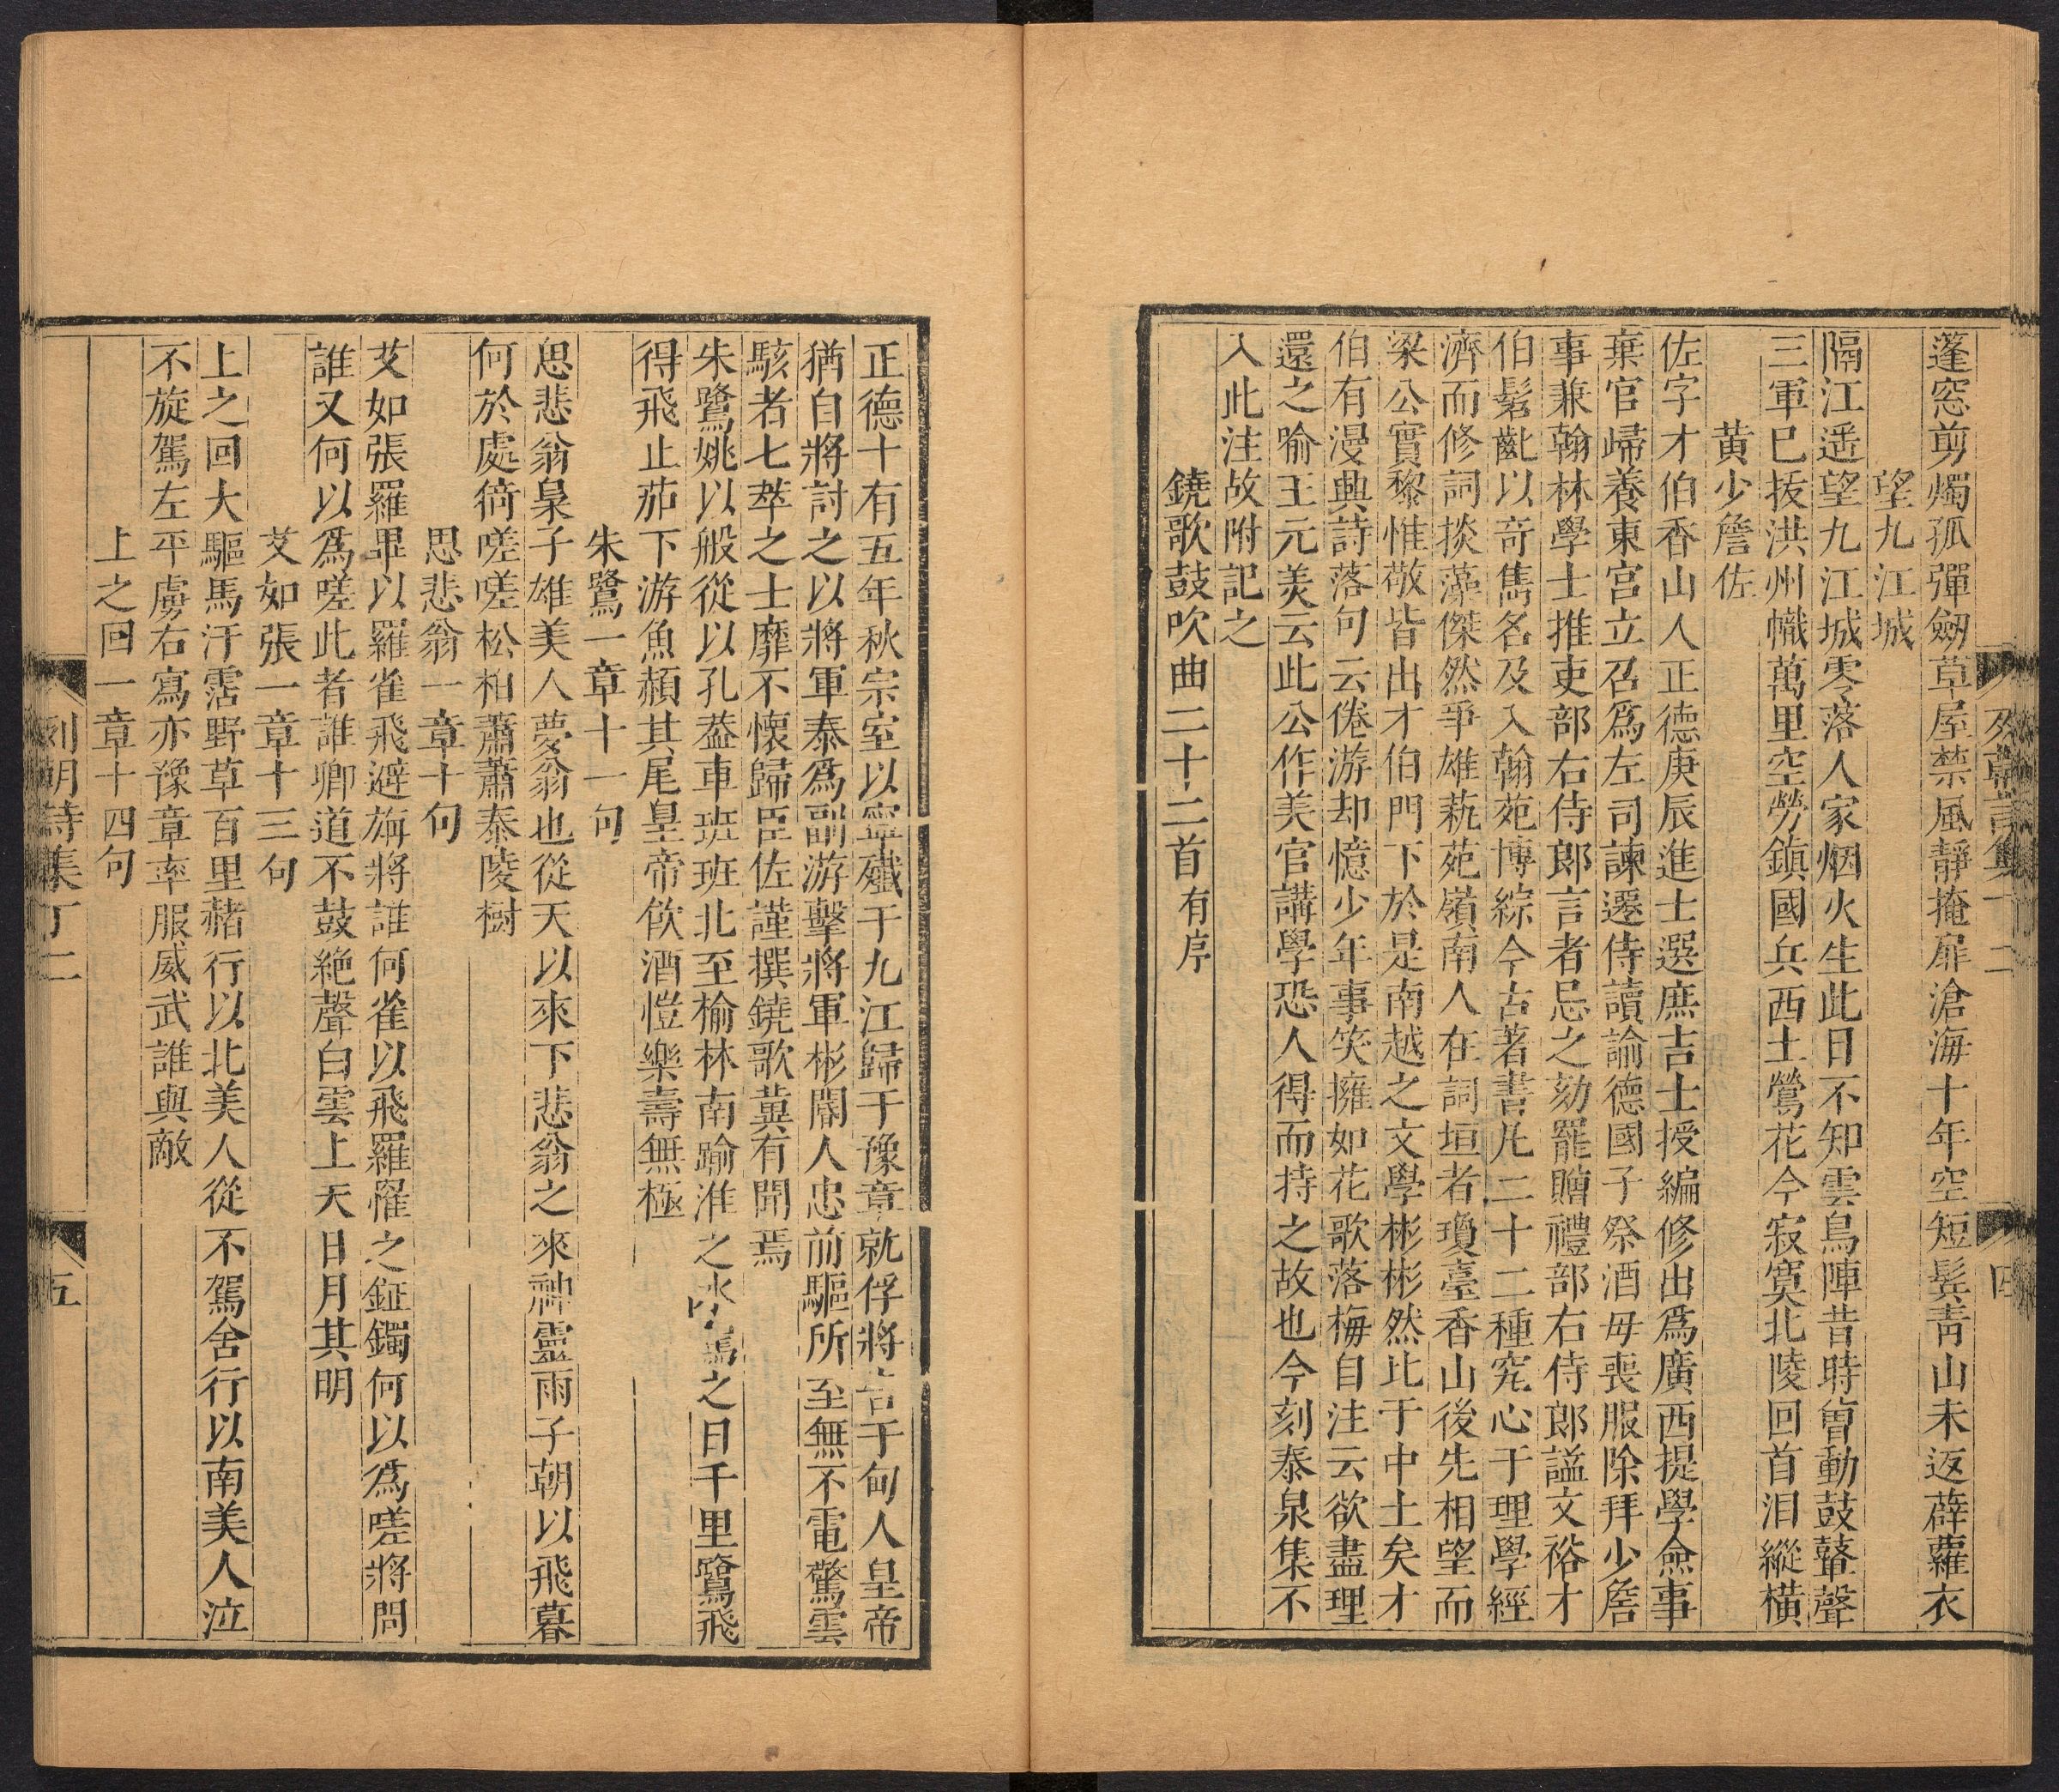 蓬窓剪燭孤彈劒草屋禁風靜掩扉滄海十年空短鬂靑山未返薜蘿衣
望九江城
隔江遥望九江城零落人家烟火生此日不知雲鳥陣昔時曾動鼓鼙聲
三軍巳抜洪州幟萬里空勞鎮國兵西土鶯花今寂寞北陵回首泪縱橫
黄少詹佐
佐字才伯香山人正德庚辰進士選庶吉士授編修出爲廣西提學僉事
棄官歸養東宮立召爲左司諫遷侍讀諭德國子祭酒毋喪服除拜少詹
事兼翰林學士推吏部右侍郎言者忌之劾罷贈禮部右侍郎謚文裕才
伯髫齔以奇雋名及入翰苑博綜今古著書凡二十二種究心于理學經
濟而修詞掞藻傑然爭雄蓺苑嶺南人在詞垣者瓊臺香山後先相望而
梁公實黎惟敬皆出才伯門下於是南越之文學彬彬然比于中土矣才
伯有漫興詩落句云倦游却憶少年事笑擁如花歌落梅自注云欲盡理
還之喻王元美云此公作美官講學恐人得而持之故也今刻泰泉集不
入此注故附記之
鐃歌鼓吹曲二十二首有序
列朝詩集丁二
四
正德十有五年秋宗室以寧殱于九江歸于豫章就俘將告于甸人皇帝
猶自將討之以將軍泰爲副游擊將軍彬閹人忠前驅所至無不電驚雲
駭者七萃之士靡不懷歸臣佐謹撰鐃歌冀有聞焉
朱鷺姚以般從以孔葢車班班北至楡林南踰淮之水之日千里鷺飛
得飛止茄下游魚頳其尾皇帝飮酒愷樂壽無極
朱鷺一章十一句
思悲翁梟子雄美人夢翁也從天以來下悲翁之來神靈雨子朝以飛暮
何於處徛嗟嗟松柏蕭蕭泰陵樹
思悲翁一章十句
艾如張羅罪以羅雀飛避旃將誰何雀以飛羅罹之鉦鐲何以爲嗟將問
誰又何以爲嗟此者誰卿道不鼓絶聲白雲上天日月其明
艾如張一章十三句
上之回大驅馬汗霑野草百里赭行以北美人從不駕舍行以南美人泣
不旋駕左平虜右寫亦豫章率服威武誰與敵
上之回一章十四句
列朝詩集丁二
五